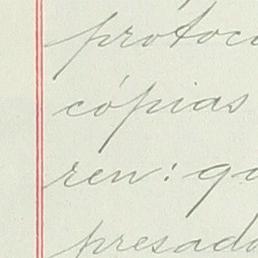 protoco
cópias
ren: qu
presado